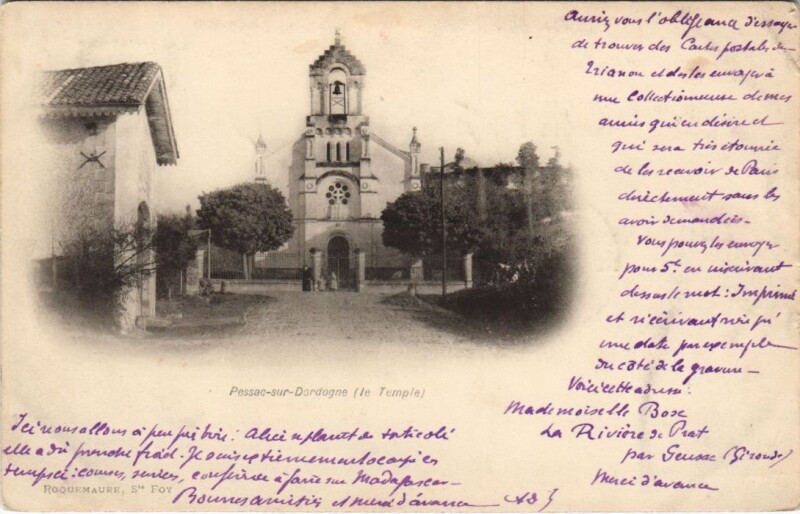 Auriez vous l'obligeance d'essayer
de trouver des Cartes postales de
Trianon et de les envoyer à
une Collectionneuse de mes
amies qui en désire et
qui sera très étonnée
de les recevoir de Paris
directement sans les
avoir demandées.
Vous pouvez les envoyer
pour 5c. en inscrivant
dessus le mot: Imprimé
et n'écrivant rien qu'
une date par exemple
du côté de la gravure.
Voici cette adresse:
Mademoiselle Bosc
La Rivière de Prat
par Gensac (Gironde)
Merci d'avance
Pessac-sur-Dordogne (le Temple)
Ici nous allons à peu près bien: Alice se plaint de torticolis
elle a dû prendre froid. Je suis extrêmement occupé ces
temps ci: courses, conférence à faire sur Madagascar
Bonnes amitiés et merci d'avance
ROQUEMAURE, Ste FOY